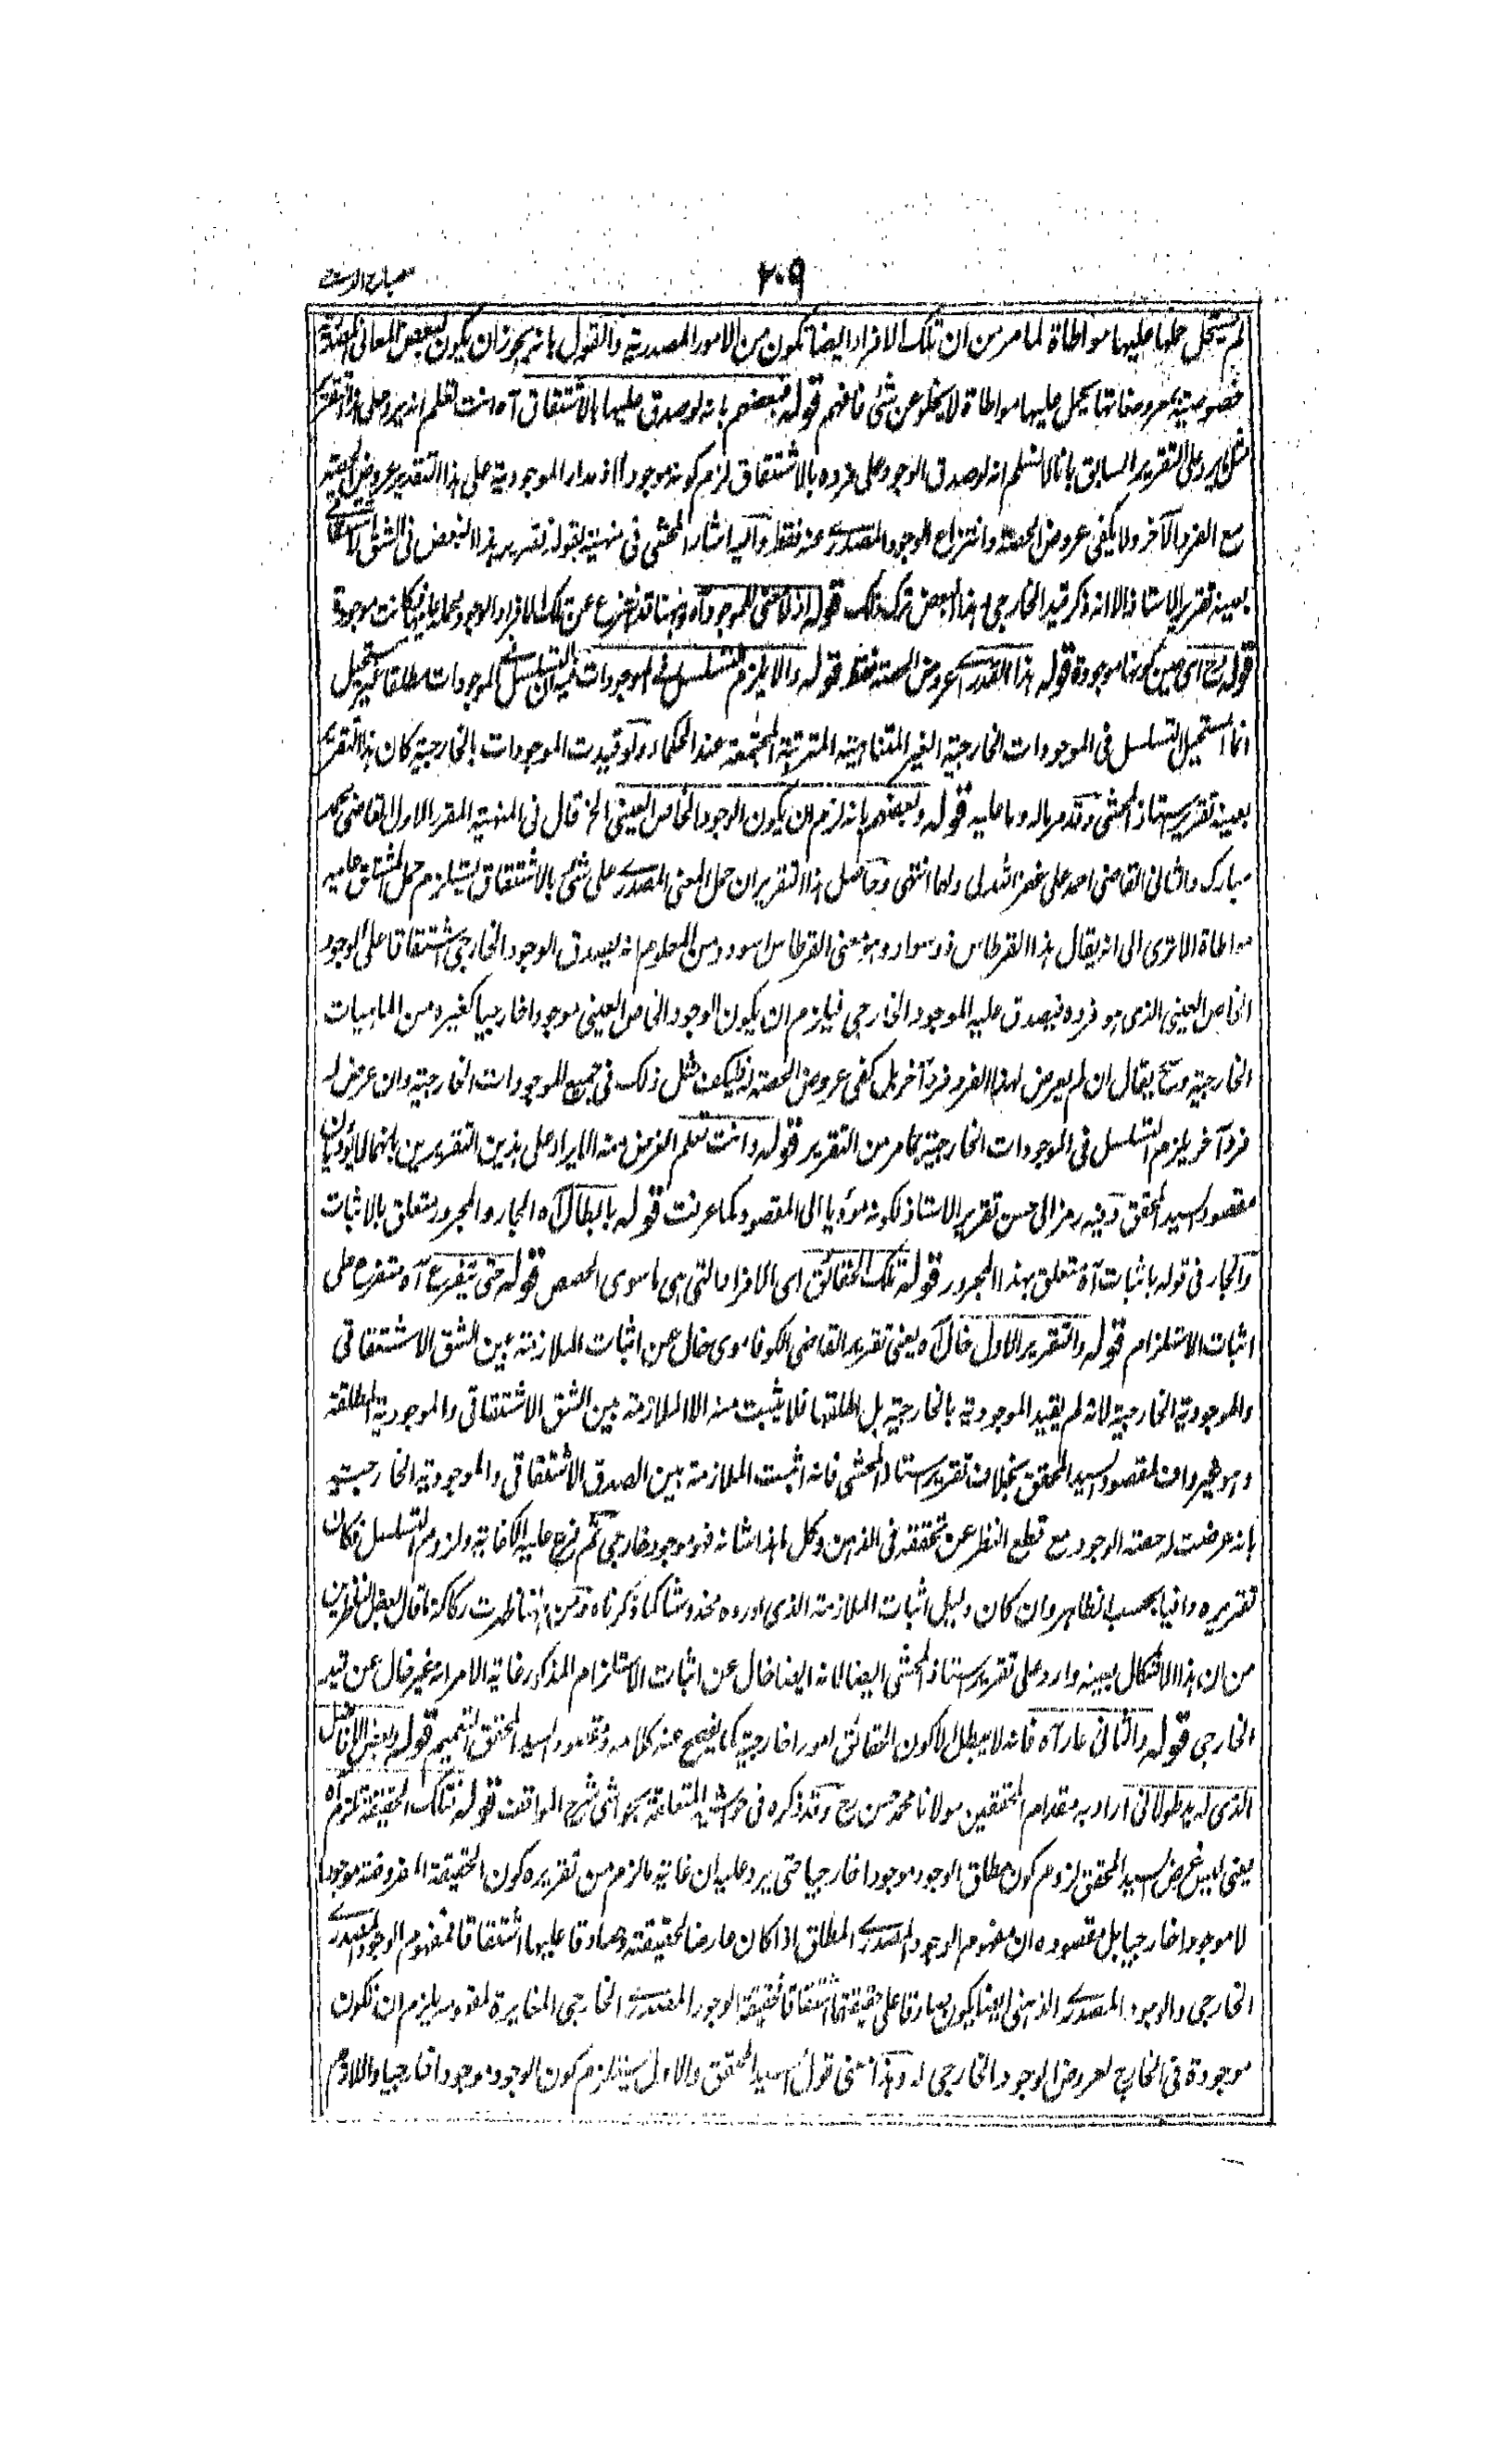 ٢٠٩
لم يستحيل حملها عليها مواطاة لما مر من ان تلك الافراد ايضا تكون من الامور المصدرية والقول بانه يجوز ان يكون لبعض المعانى المصدرية
خصوصية بمعروضاتها يحمل عليها مواطاة لا يخلو عن شئ فافهم قوله فبعضهم بانه لو صدق عليها بالاشتقاق آه انت تعلم انه يرد على هذا التقرير
مثل ما يرد على التقرير السابق بانا لا نسلم انه لو صدق الوجود على فرده بالاشتقاق لزم كونه موجودا اذ مدار الموجودية على هذا التقدير عروض
مع الفرد الآخر ولا يكفى عروض الحصة وانتزاع الوجود المصدرے عنه فقط واليه اشار المحشى فى منهيته بقوله تقرير هذا البعض فى الشق الاشتقاقے
بعينه تقرير الاستاذ الا انه ذكر قيد الخارجى وهذا البعض ترك ذلك قوله اذ لا معنى للموجود آه وههنا قد انتزع عن تلك الافراد الوجود كانت موجودة
قوله ح اى حين كونها موجودة قوله هذا القدر اے عروض الحصة فقط قوله والا يلزم التسلسل فے الموجودات فيه ان التسلسل فے الموجودات مطلقا غير مستحيل
انما يستحيل التسلسل فى الموجودات الخارجية الغير المتناهية المترتبة المجتمعة عند الحكماء ولو قيدت الموجودات بالخارجية كان هذا التقرير
بعينه تقرير استاذ المحشى وقد مر ماله وما عليه قوله وبعضهم بانه لزم ان يكون الوجود الخاص العينى الخ قال فى المنهية المقرر الاول القاضى محمد
مبارك والثانى القاضى احمد على غفر الله لى ولهما انتهى وحاصل هذا التقرير ان حمل المعنى المصدرے على شئ بالاشتقاق يستلزم حمل المشتق عليه
مواطاة الا ترى الى انه يقال هذا القرطاس ذو سواد وهو معنى القرطاس اسود ومن المعلوم انه يصدق الوجود الخارجى اشتقاقا على الوجود
الخاص العينى الذى هو فرده فيصدق عليه الموجود الخارجى فيلزم ان يكون الوجود الخاص العينى موجودا خارجيا كغيره من الماهيات
الخارجية وح يقال ان لم يعرض لهذا الفرد فرد آخر بل كفى عروض الحصة له فليكف مثل ذلك فى جميع الموجودات الخارجية وان عرض له
فرد آخر يلزم التسلسل فى الموجودات الخارجية كما مر من التقرير قوله وانت تعلم الغرض منه الايراد على هذين التقريرين بانهما لا يؤديان
مقصود السيد المحقق وفيه رمز الى حسن تقرير الاستاذ لكونه مؤديا الى المقصود كما عرفت قوله بابطال آه الجار والمجرور متعلق بالاثبات
والجار فى قوله باثبات آه متعلق بهذا المجرور قوله تلك الحقائق اى الافراد التى هى ما سوى الحصص قوله حتى يتفرع آه متفرع على
اثبات الاستلزام قوله والتقرير الاول خال آه يعنى تقرير القاضى الكوفاموى خال عن اثبات الملازمة بين الشق الاشتقاقى
والموجودية الخارجية لانه لم يقيد الموجودية بالخارجية بل اطلقها فلا يثبت منه الا الملازمة بين الشق الاشتقاقى والموجودية المطلقة
وهو غير واف لمقصود السيد المحقق بخلاف تقرير استاذ المحشى فانه اثبت الملازمة بين الصدق الاشتقاقى والموجودية الخارجية
بانه عرضت له حصة الوجود مع قطع النظر عن تحققه فى الذهن وكل ما هذا شانه فهو موجود خارجى ثم فرع عليه الكفاية ولزوم التسلسل فكان
تقريره وافيا بحسب الظاهر وان كان دليل اثبات الملازمة الذى اورده مخدوشا كما ذكرناه ومن ههنا ظهرت ركاكة ما قال بعض الناظرين
من ان هذا الاشكال بعينه وارد على تقرير استاذ المحشى ايضا لانه ايضا خال عن اثبات الاستلزام المذكور غاية الامر انه غير خال عن قيد
الخارجى قوله والثانى عار آه فانه لا يبطل الا كون الحقائق امورا خارجية كما يفصح عنه كلامه ومقصود السيد المحقق التعميم قوله بعض الافاضل
الذى له يد طولى اراد به مقدام المحققين مولانا محمد حسن رح وقد ذكره فى حواشيه المتعلقة بحواشى شرح المواقف قوله فتلك الحقيقة تلزم آه
يعنى ليس غرض السيد المحقق لزوم كون مطلق الوجود موجودا خارجيا حتى يرد عليه ان غاية ما لزم من تقريره كون الحقيقة المفروضة موجودا
لا موجودا خارجيا بل مقصوده ان مفهوم الوجود المصدرے المطلق اذا كان عارضا لحقيقته وصادقا عليها اشتقاقا فمفهوم الوجود المصدرے
الخارجى والوجود المصدرے الذهنى ايضا يكون صادقا على حقيقتهما اشتقاقا فحقيقة الوجود المصدرے الخارجى المغايرة لمفهومه يلزم ان تكون
موجودة فى الخارج لعروض الوجود الخارجى له وهذا معنى قول السيد المحقق والاول يستلزم كون الوجود موجودا خارجيا واللازم